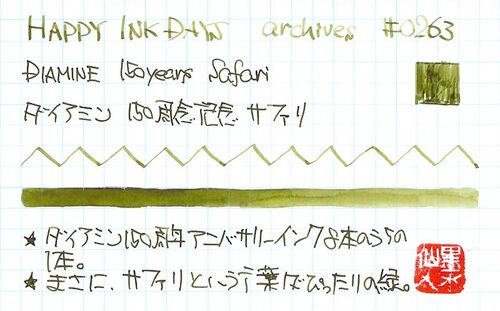 HAPPY INK DAYS archives #0263
DIAMINE 150years Safari
ダイアミン 150周年記念 サファリ
★ ダイアミン150周年アニバーサリーインク8本のうちの
1本。
★ まさに、サファリという言葉がぴったりの緑。
墨水
仙人